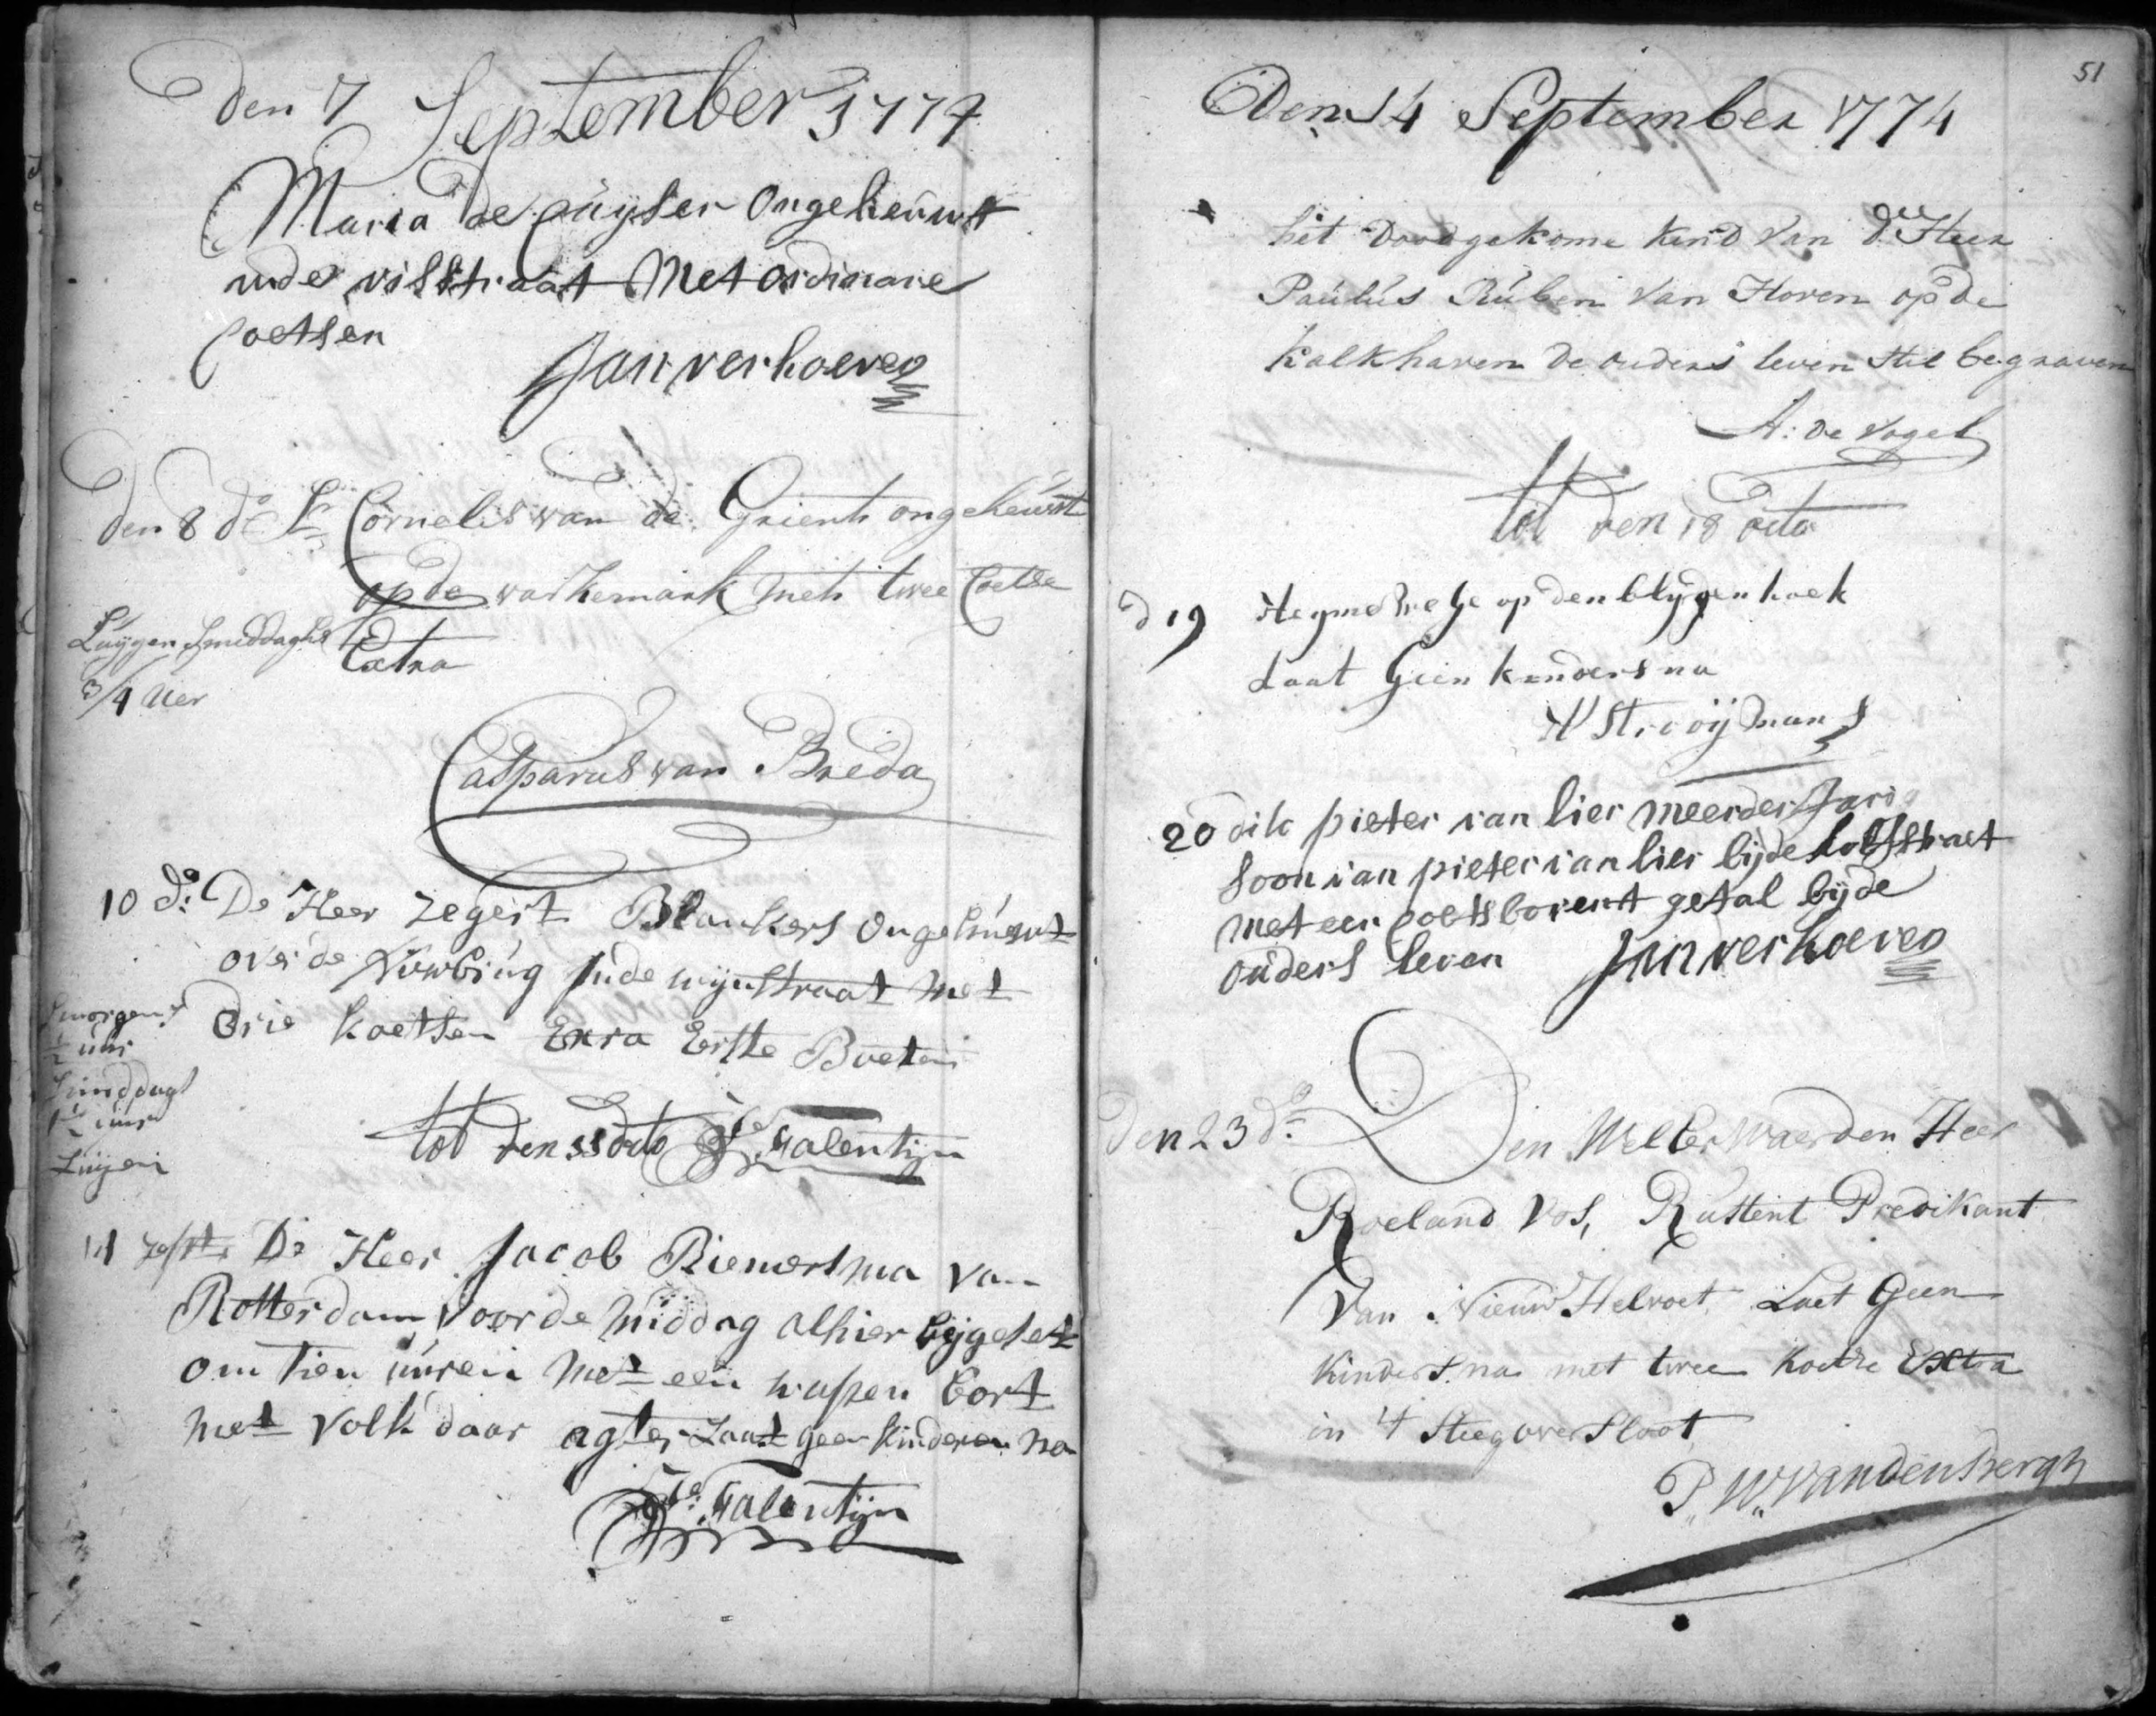 Den 7 September 1774
Maria de Cuÿser Ongeheuwt
inde visstraat Met ordinare
Coetsen
Jan verhoeven
Den 8 do Sr Cornelis van de Grient ongeheuwt
op de varkemark met twee Coetse
Extra
Luÿgen Smiddaghs
3/4 uer
Casparus van Breda
10 do: De Heer Zegert Blankers Ongehuewt
over de Nuwbrug Inde wijnstraat met
Drie koetsen Exra Erste Boeten
Smorgens
1/2 uur
Smiddags
1 1/2 uur
Luijen
tot den 11 dato Valentijn
11 Sept. De Heer Jacob Riemersma van
Rotterdam voor de Middag alhier bijgeset
om tien uuren met een wapen bort
met volk daar agter Laat geen kinderen na
Valentijn
51
Den 14 September 1774
het Doodgekome kind van de Heer
Paulus Ruben van Hoven op de
Kalkhaven de ouders leven Stil begraven
A: de Vogel
tot den 18 dito
d 19 op den blijden hoek
Laat Geen kinders na
Strooijmans
20 dito pieter van lier meerder Jarig
soon van pieter van lier bijde
met een coets bovent getal bijde
ouders leven Jan verhoeven
Den 23 do Den WelEerwaerden Heer
Roeland Vos, Rustent Predikant
Van Nieuw Helvoet, Laet Geen
Kinders na met twee Koetse Extra
in 't Steegoversloot
P,, W,, Vandenbergh